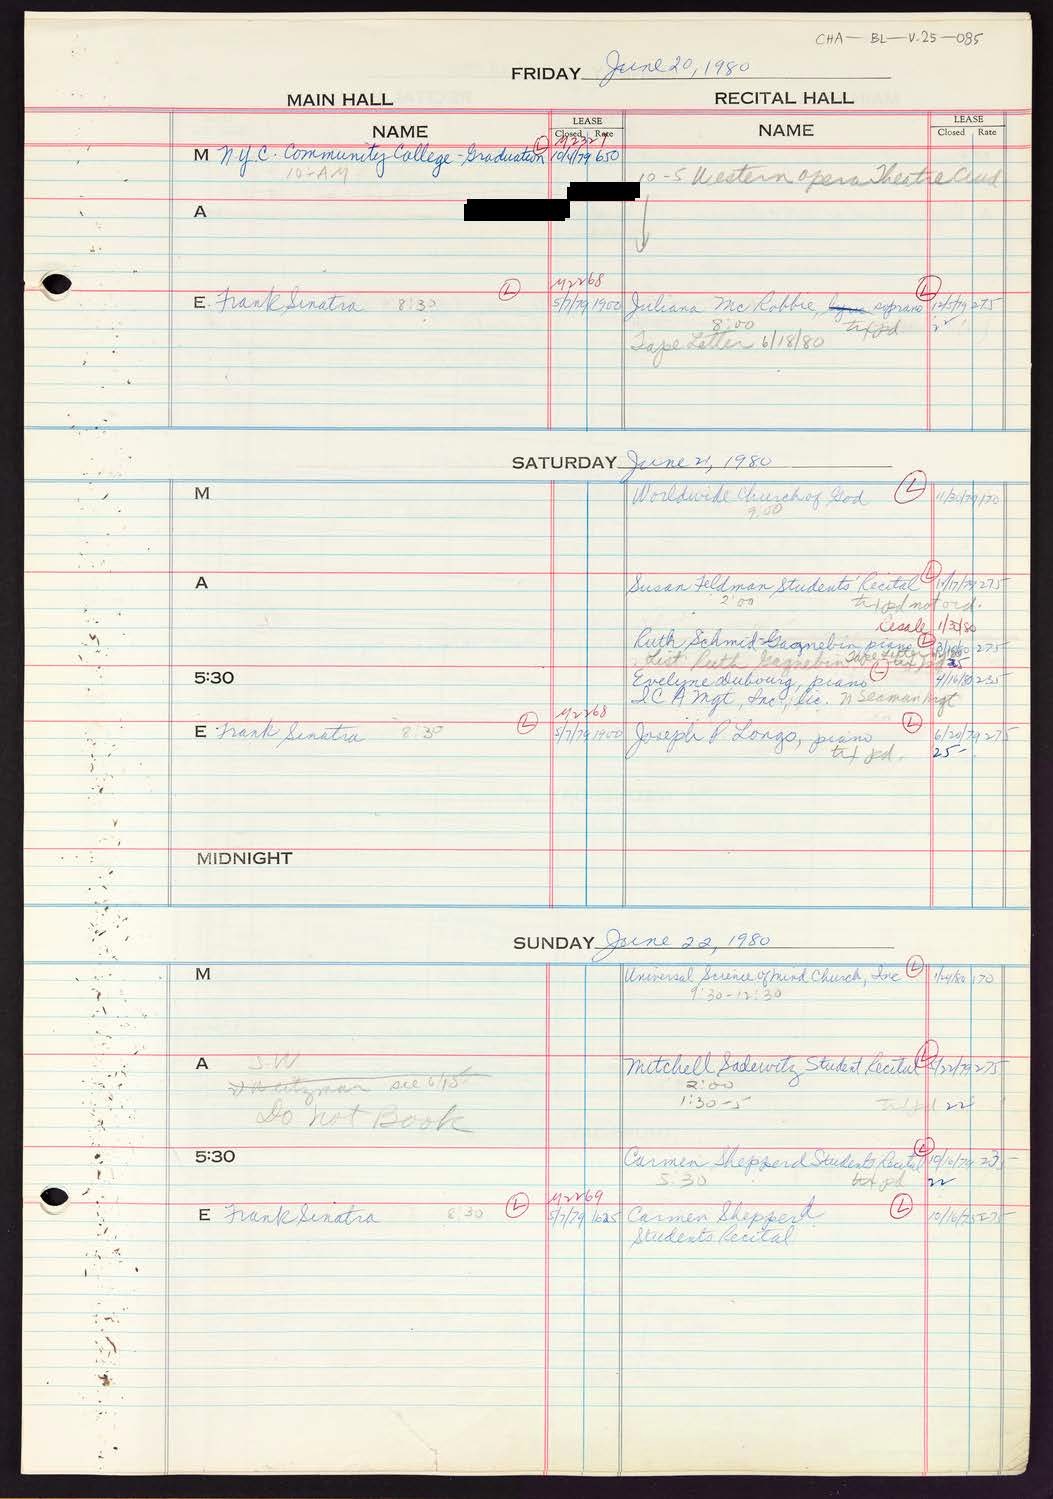 CHA-BL-V.25-085
FRIDAY June 20, 1980
MAIN HALL
RECITAL HALL
NAME
LEASE
Closed Rate
NAME
LEASE
Closed Rate
M2327
M N.Y.C. Community College-Graduation L 10/4/79 650
10-AM
10-5 Western Opera Theatre Aud
A
M2268
E Frank Sinatra 8:30 L 5/7/79 1900
Juliana McRobbie, soprano L 12/5/79 275
8:00 txf pd 22
Tape Letter 6/18/80
SATURDAY June 21, 1980
M
Worldwide Church of God L 170
9:00
A
Susan Feldman Students' Recital L 275
2:00 txf pd not ord.
Resale 1/3/80
Ruth Schmid-Gagnebin piano L 275
List Ruth Gagnebin Tape Letter
5:30
Evelyne Dubourg, piano L 4/16/80 235
ICA Mgt, Inc., lic. N Seaman Mgt
M2268
E Frank Sinatra 8:30 L 5/7/79 1900
Joseph P Longo, piano L 6/20/79 275
txf pd. 25-
MIDNIGHT
SUNDAY June 22, 1980
M
Universal Science of Mind Church, Inc L 1/24/80 170
9:30-12:30
A
S.W
see 6/15
Do Not Book
Mitchell Sadewitz Student Recital L 5/22/79 275
2:00
1:30-5 txf pd 22
5:30
Carmen Shepperd Students Recital L 10/16/79 235
5:30 txf pd 22
M2269
E Frank Sinatra 8:30 L 5/7/79 1625
Carmen Shepperd L 275
Students Recital